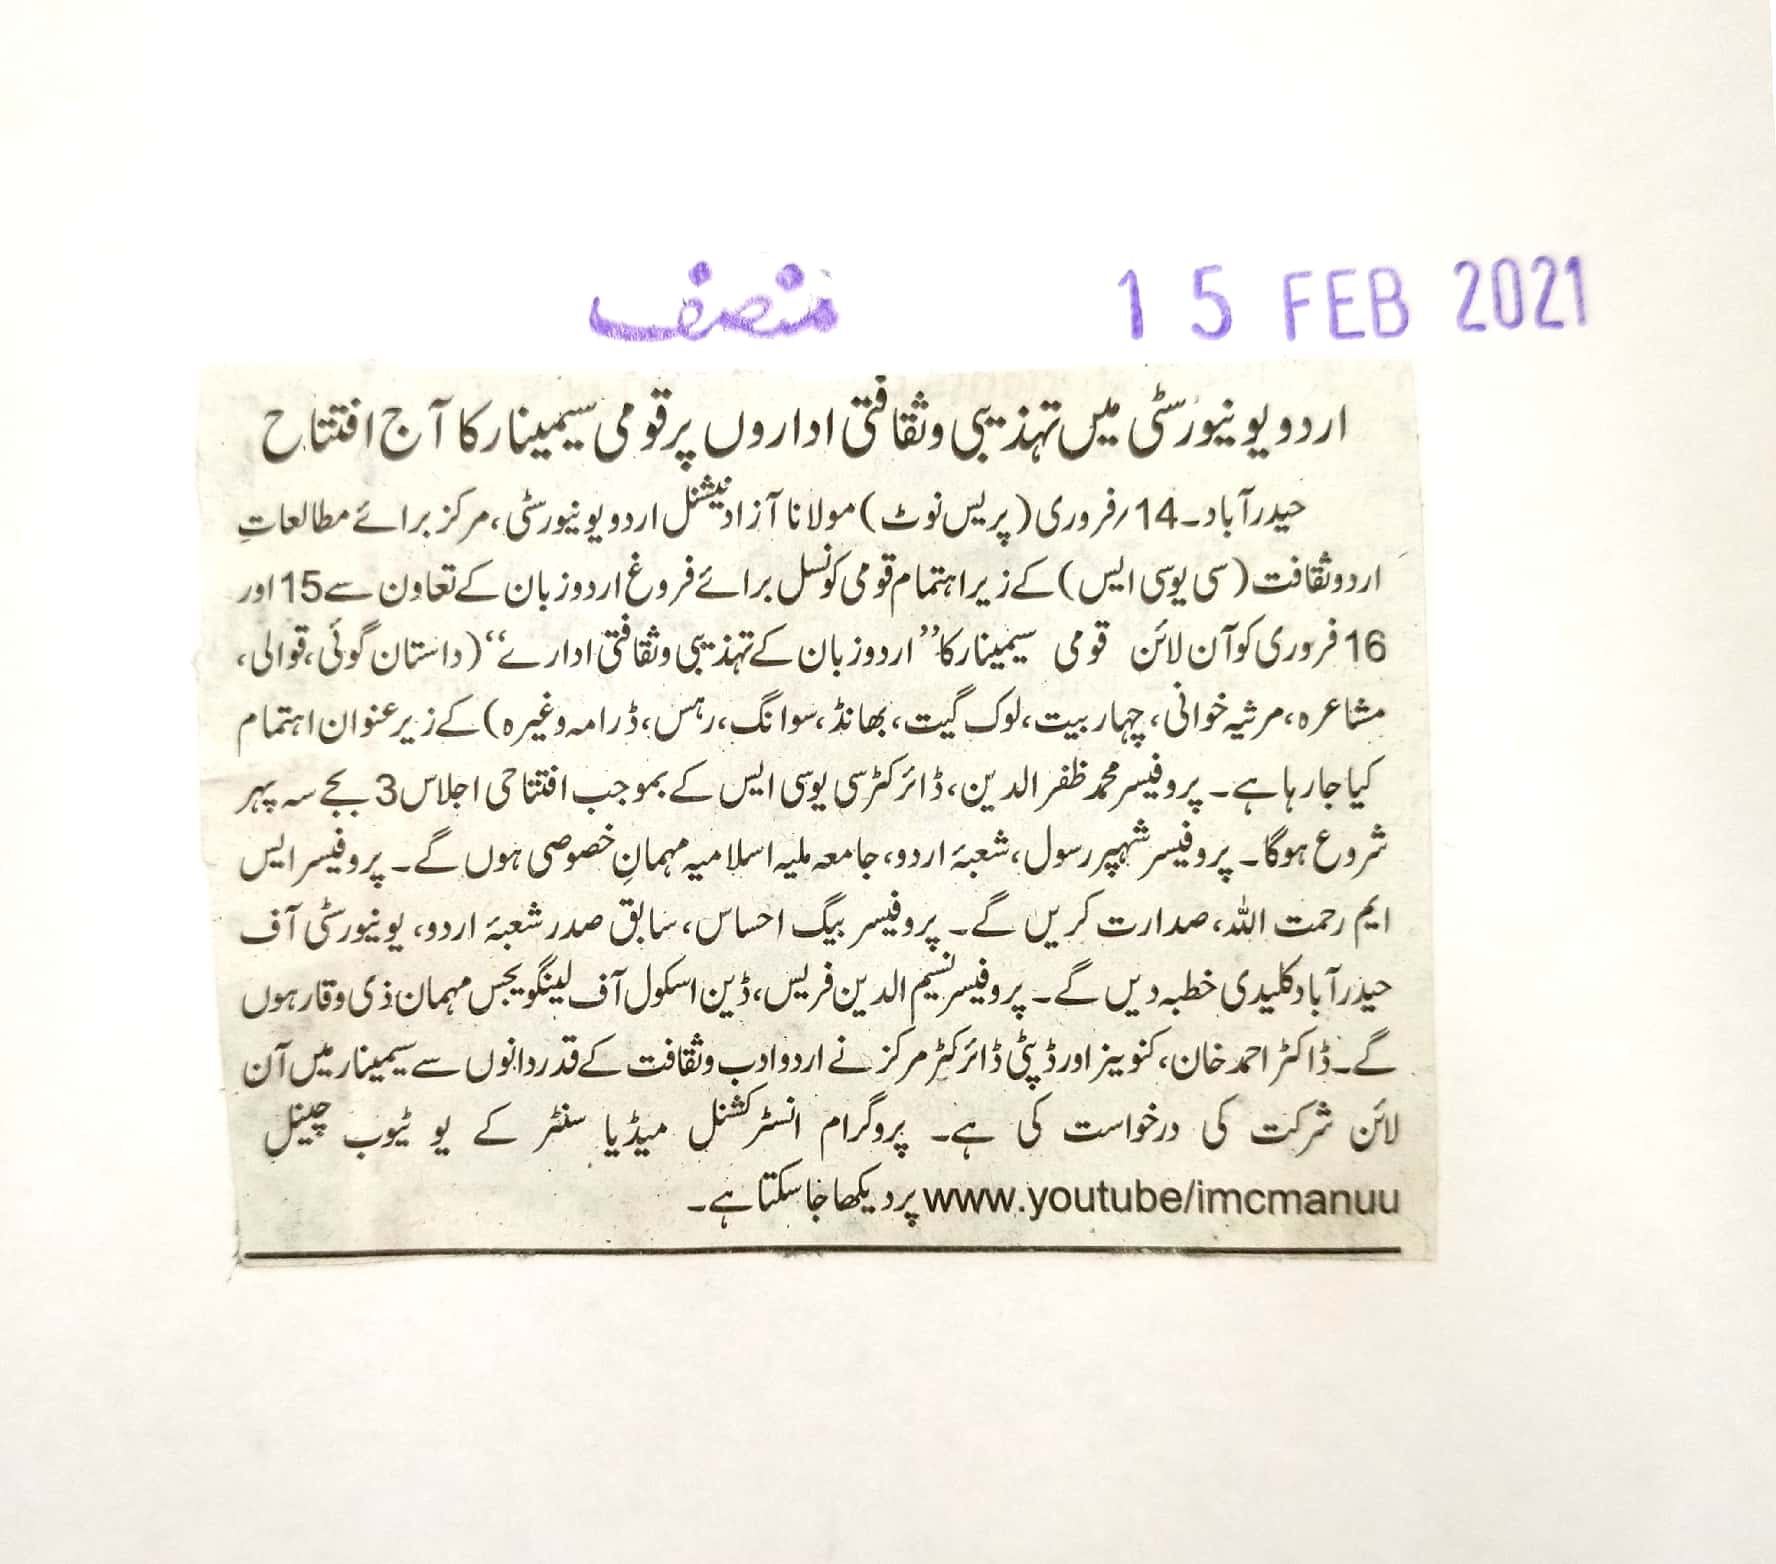 منصف
15 FEB 2021
اردو یونیورسٹی میں تہذیبی و ثقافتی اداروں پر قومی سیمینار کا آج افتتاح
حیدرآباد۔14؍فروری (پریس نوٹ) مولانا آزاد نیشنل اردو یونیورسٹی، مرکز برائے مطالعاتِ
اردو ثقافت (سی یو سی ایس) کے زیر اہتمام قومی کونسل برائے فروغ اردو زبان کے تعاون سے 15 اور
16 فروری کو آن لائن قومی سیمینار کا ”اردو زبان کے تہذیبی و ثقافتی ادارے“ (داستان گوئی، قوالی،
مشاعرہ، مرثیہ خوانی، چہار بیت، لوک گیت، بھانڈ، سوانگ، رہس، ڈرامہ وغیرہ) کے زیر عنوان اہتمام
کیا جا رہا ہے۔ پروفیسر محمد ظفر الدین، ڈائرکٹر سی یو سی ایس کے بموجب افتتاحی اجلاس 3 بجے سہ پہر
شروع ہوگا۔ پروفیسر شہپر رسول، شعبۂ اردو، جامعہ ملیہ اسلامیہ مہمانِ خصوصی ہوں گے۔ پروفیسر ایس
ایم رحمت اللہ، صدارت کریں گے۔ پروفیسر بیگ احساس، سابق صدر شعبۂ اردو، یونیورسٹی آف
حیدرآباد کلیدی خطبہ دیں گے۔ پروفیسر نسیم الدین فریس، ڈین اسکول آف لینگویجس مہمان ذی وقار ہوں
گے۔ ڈاکٹر احمد خان، کنوینر اور ڈپٹی ڈائرکٹر مرکز نے اردو ادب و ثقافت کے قدردانوں سے سیمینار میں آن
لائن شرکت کی درخواست کی ہے۔ پروگرام انسٹرکشنل میڈیا سنٹر کے یو ٹیوب چینل
www.youtube/imcmanuu پر دیکھا جا سکتا ہے۔